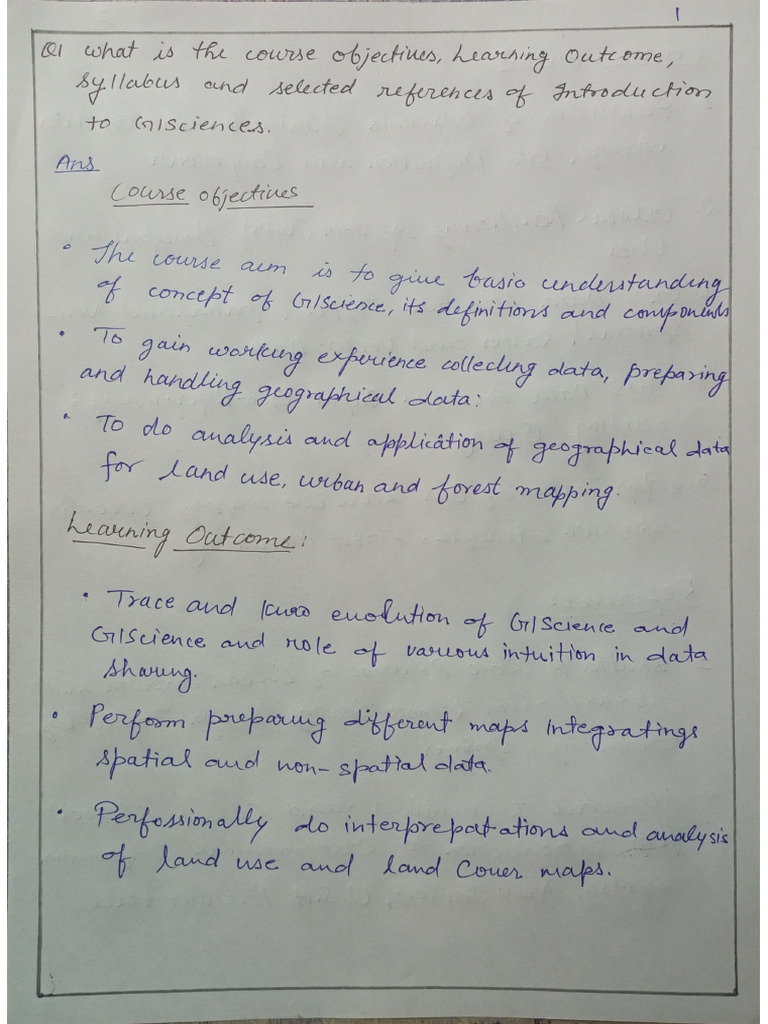 1
Q1 What is the course objectives, Learning Outcome,
Syllabus and selected references of Introduction
to GISciences.
Ans
Course objectives
• The course aim is to give basic understanding
of concept of GIScience, its definitions and components
• To gain working experience collecting data, preparing
and handling geographical data:
• To do analysis and application of geographical data
for land use, urban and forest mapping.
Learning Outcome:
• Trace and know evolution of GIScience and
GIScience and role of various intuition in data
sharing.
• Perform preparing different maps Integratings
spatial and non-spatial data.
• Perfossionally do interprepatations and analysis
of land use and land Cover maps.